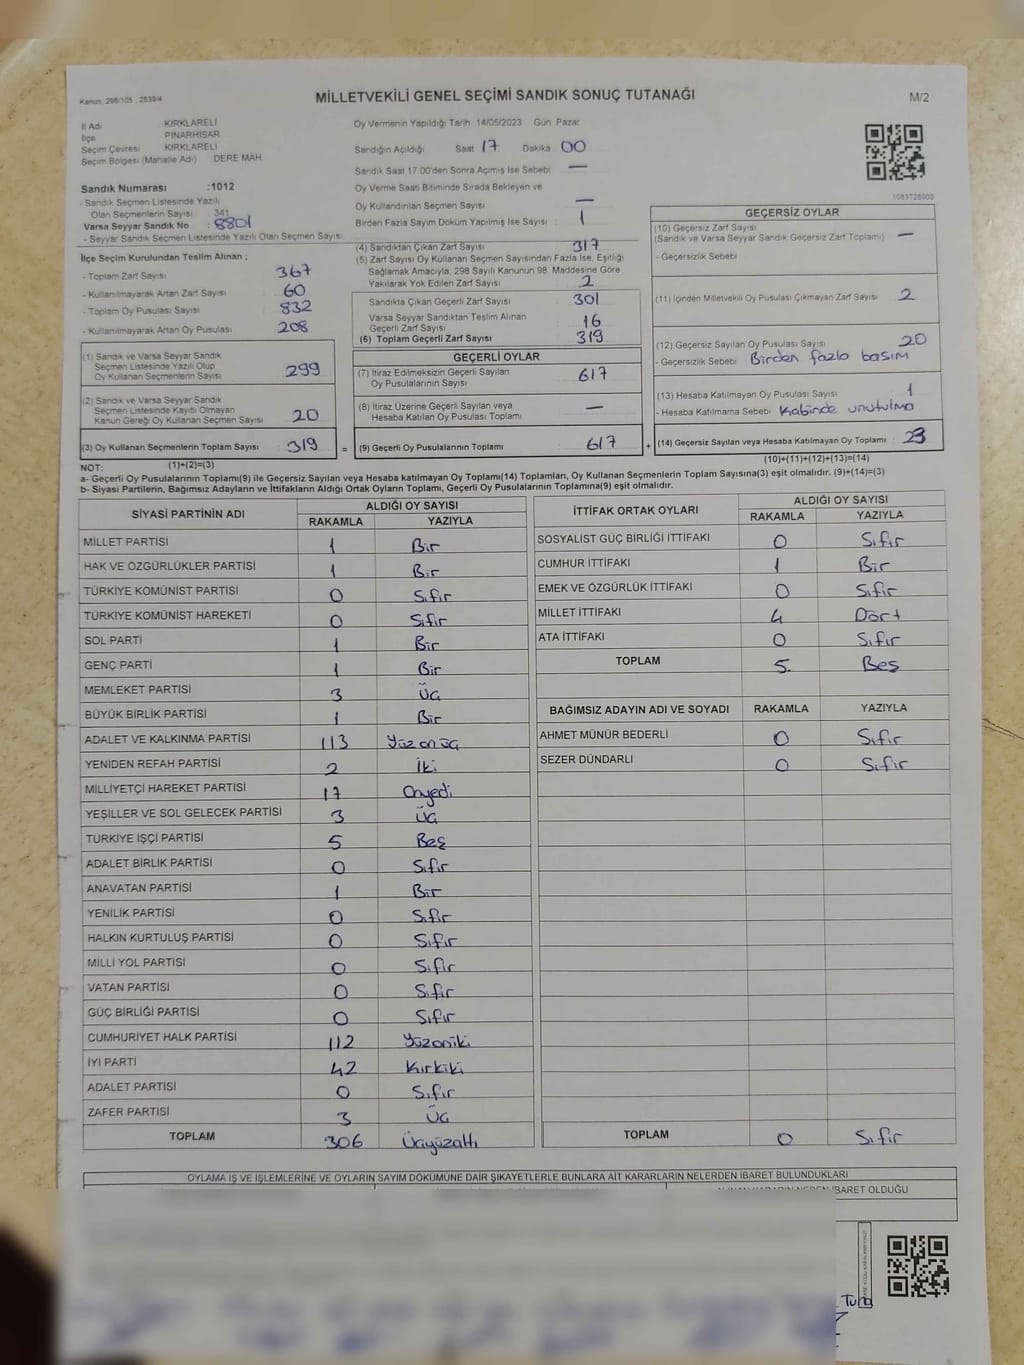 Kanun: 298/105 , 2839/4
MİLLETVEKİLİ GENEL SEÇİMİ SANDIK SONUÇ TUTANAĞI
M/2
İl Adı KIRKLARELİ
İlçe PINARHİSAR
Seçim Çevresi KIRKLARELİ
Seçim Bölgesi (Mahalle Adı) DERE MAH.
Oy Vermenin Yapıldığı Tarih : 14/05/2023 Gün: Pazar
Sandığın Açıldığı Saat 17 Dakika 00
Sandık Saat 17:00'den Sonra Açımış İse Sebebi —
Oy Verme Saati Bitiminde Sırada Bekleyen ve
Oy Kullandırılan Seçmen Sayısı —
Birden Fazla Sayım Döküm Yapılmış İse Sayısı : 1
1083728902
Sandık Numarası :1012
- Sandık Seçmen Listesinde Yazılı
Olan Seçmenlerin Sayısı 341
Varsa Seyyar Sandık No : 8801
- Seyyar Sandık Seçmen Listesinde Yazılı Olan Seçmen Sayısı
İlçe Seçim Kurulundan Teslim Alınan ;
- Toplam Zarf Sayısı 367
- Kullanılmayarak Artan Zarf Sayısı 60
- Toplam Oy Pusulası Sayısı 832
- Kullanılmayarak Artan Oy Pusulası 208
(1) Sandık ve Varsa Seyyar Sandık
Seçmen Listesinde Yazılı Olup
Oy Kullanan Seçmenlerin Sayısı 299
(2) Sandık ve Varsa Seyyar Sandık
Seçmen Listesinde Kayıtlı Olmayan
Kanun Gereği Oy Kullanan Seçmen Sayısı 20
(3) Oy Kullanan Seçmenlerin Toplam Sayısı 319 =
(4) Sandıktan Çıkan Zarf Sayısı 317
(5) Zarf Sayısı Oy Kullanan Seçmen Sayısından Fazla İse, Eşitliği
Sağlamak Amacıyla, 298 Sayılı Kanunun 98. Maddesine Göre
Yakılarak Yok Edilen Zarf Sayısı 2
Sandıkta Çıkan Geçerli Zarf Sayısı 301
Varsa Seyyar Sandıktan Teslim Alınan
Geçerli Zarf Sayısı 16
(6) Toplam Geçerli Zarf Sayısı 319
GEÇERLİ OYLAR
(7) İtiraz Edilmeksizin Geçerli Sayılan
Oy Pusulalarının Sayısı 617
(8) İtiraz Üzerine Geçerli Sayılan veya
Hesaba Katılan Oy Pusulası Toplamı —
(9) Geçerli Oy Pusulalarının Toplamı 617 +
GEÇERSİZ OYLAR
(10) Geçersiz Zarf Sayısı
(Sandık ve Varsa Seyyar Sandık Geçersiz Zarf Toplamı) —
- Geçersizlik Sebebi
(11) İçinden Milletvekili Oy Pusulası Çıkmayan Zarf Sayısı 2
(12) Geçersiz Sayılan Oy Pusulası Sayısı 20
- Geçersizlik Sebebi Birden fazla basım
(13) Hesaba Katılmayan Oy Pusulası Sayısı 1
- Hesaba Katılmama Sebebi Kabinde unutulma
(14) Geçersiz Sayılan veya Hesaba Katılmayan Oy Toplamı 23
NOT: (1)+(2)=(3)
(10)+(11)+(12)+(13)=(14)
a- Geçerli Oy Pusulalarının Toplamı(9) ile Geçersiz Sayılan veya Hesaba katılmayan Oy Toplamı(14) Toplamları, Oy Kullanan Seçmenlerin Toplam Sayısına(3) eşit olmalıdır. (9)+(14)=(3)
b- Siyasi Partilerin, Bağımsız Adayların ve İttifakların Aldığı Ortak Oyların Toplamı, Geçerli Oy Pusulalarının Toplamına(9) eşit olmalıdır.
SİYASİ PARTİNİN ADI
ALDIĞI OY SAYISI
RAKAMLA YAZIYLA
MİLLET PARTİSİ 1 Bir
HAK VE ÖZGÜRLÜKLER PARTİSİ 1 Bir
TÜRKİYE KOMÜNİST PARTİSİ 0 Sıfır
TÜRKİYE KOMÜNİST HAREKETİ 0 Sıfır
SOL PARTİ 1 Bir
GENÇ PARTİ 1 Bir
MEMLEKET PARTİSİ 3 Üç
BÜYÜK BİRLİK PARTİSİ 1 Bir
ADALET VE KALKINMA PARTİSİ 113 Yüzonüç
YENİDEN REFAH PARTİSİ 2 İki
MİLLİYETÇİ HAREKET PARTİSİ 17 Onyedi
YEŞİLLER VE SOL GELECEK PARTİSİ 3 Üç
TÜRKİYE İŞÇİ PARTİSİ 5 Beş
ADALET BİRLİK PARTİSİ 0 Sıfır
ANAVATAN PARTİSİ 1 Bir
YENİLİK PARTİSİ 0 Sıfır
HALKIN KURTULUŞ PARTİSİ 0 Sıfır
MİLLİ YOL PARTİSİ 0 Sıfır
VATAN PARTİSİ 0 Sıfır
GÜÇ BİRLİĞİ PARTİSİ 0 Sıfır
CUMHURİYET HALK PARTİSİ 112 Yüzoniki
İYİ PARTİ 42 Kırkiki
ADALET PARTİSİ 0 Sıfır
ZAFER PARTİSİ 3 Üç
TOPLAM 306 Üçyüzaltı
İTTİFAK ORTAK OYLARI
ALDIĞI OY SAYISI
RAKAMLA YAZIYLA
SOSYALİST GÜÇ BİRLİĞİ İTTİFAKI 0 Sıfır
CUMHUR İTTİFAKI 1 Bir
EMEK VE ÖZGÜRLÜK İTTİFAKI 0 Sıfır
MİLLET İTTİFAKI 4 Dört
ATA İTTİFAKI 0 Sıfır
TOPLAM 5 Beş
BAĞIMSIZ ADAYIN ADI VE SOYADI RAKAMLA YAZIYLA
AHMET MÜNÜR BEDERLİ 0 Sıfır
SEZER DÜNDARLI 0 Sıfır
TOPLAM 0 Sıfır
OYLAMA İŞ VE İŞLEMLERİNE VE OYLARIN SAYIM DÖKÜMÜNE DAİR ŞİKAYETLERLE BUNLARA AİT KARARLARIN NELERDEN İBARET BULUNDUKLARI
İBARET OLDUĞU